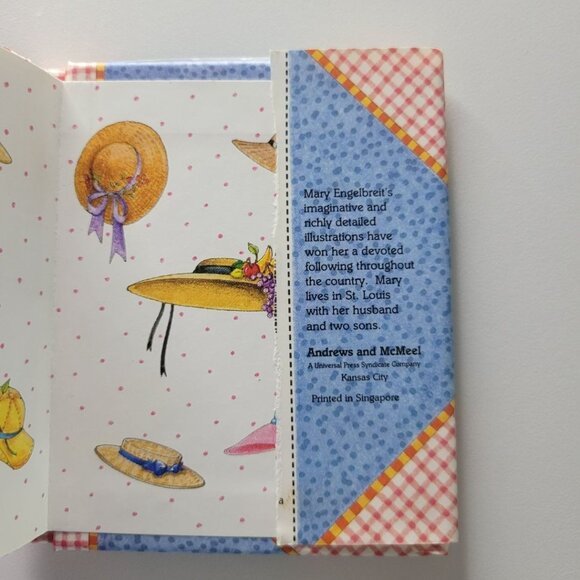 Mary Engelbreit's
imaginative and
richly detailed
illustrations have
won her a devoted
following throughout
the country. Mary
lives in St. Louis
with her husband
and two sons.
Andrews and McMeel
A Universal Press Syndicate Company
Kansas City
Printed in Singapore
a